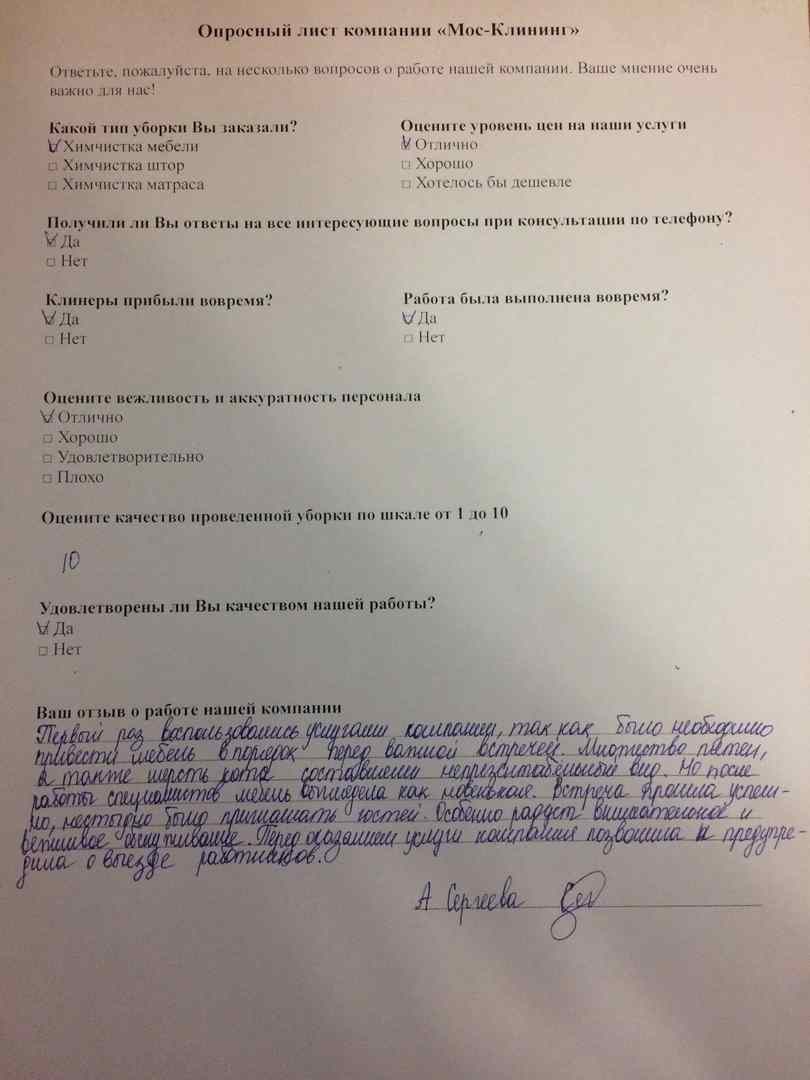 Опросный лист компании «Мос-Клининг»
Ответьте, пожалуйста, на несколько вопросов о работе нашей компании. Ваше мнение очень
важно для нас!
Какой тип уборки Вы заказали?
Химчистка мебели
□ Химчистка штор
□ Химчистка матраса
Оцените уровень цен на наши услуги
Отлично
□ Хорошо
□ Хотелось бы дешевле
Получили ли Вы ответы на все интересующие вопросы при консультации по телефону?
Да
□ Нет
Клинеры прибыли вовремя?
Да
□ Нет
Работа была выполнена вовремя?
Да
□ Нет
Оцените вежливость и аккуратность персонала
Отлично
□ Хорошо
□ Удовлетворительно
□ Плохо
Оцените качество проведенной уборки по шкале от 1 до 10
10
Удовлетворены ли Вы качеством нашей работы?
Да
□ Нет
Ваш отзыв о работе нашей компании
Первый раз воспользовались услугами компании, так как было необходимо
привести мебель в порядок перед важной встречей. Множество пятен,
а также шерсть кота составляли непрезентабельный вид. Но после
работы специалистов мебель выглядела как новенькая. Встреча прошла успеш-
но, не стыдно было приглашать гостей. Особенно радует внимательное и
вежливое обслуживание. Перед оказанием услуги компания позвонила и предупре-
дила о выезде работников.
А Сергеева